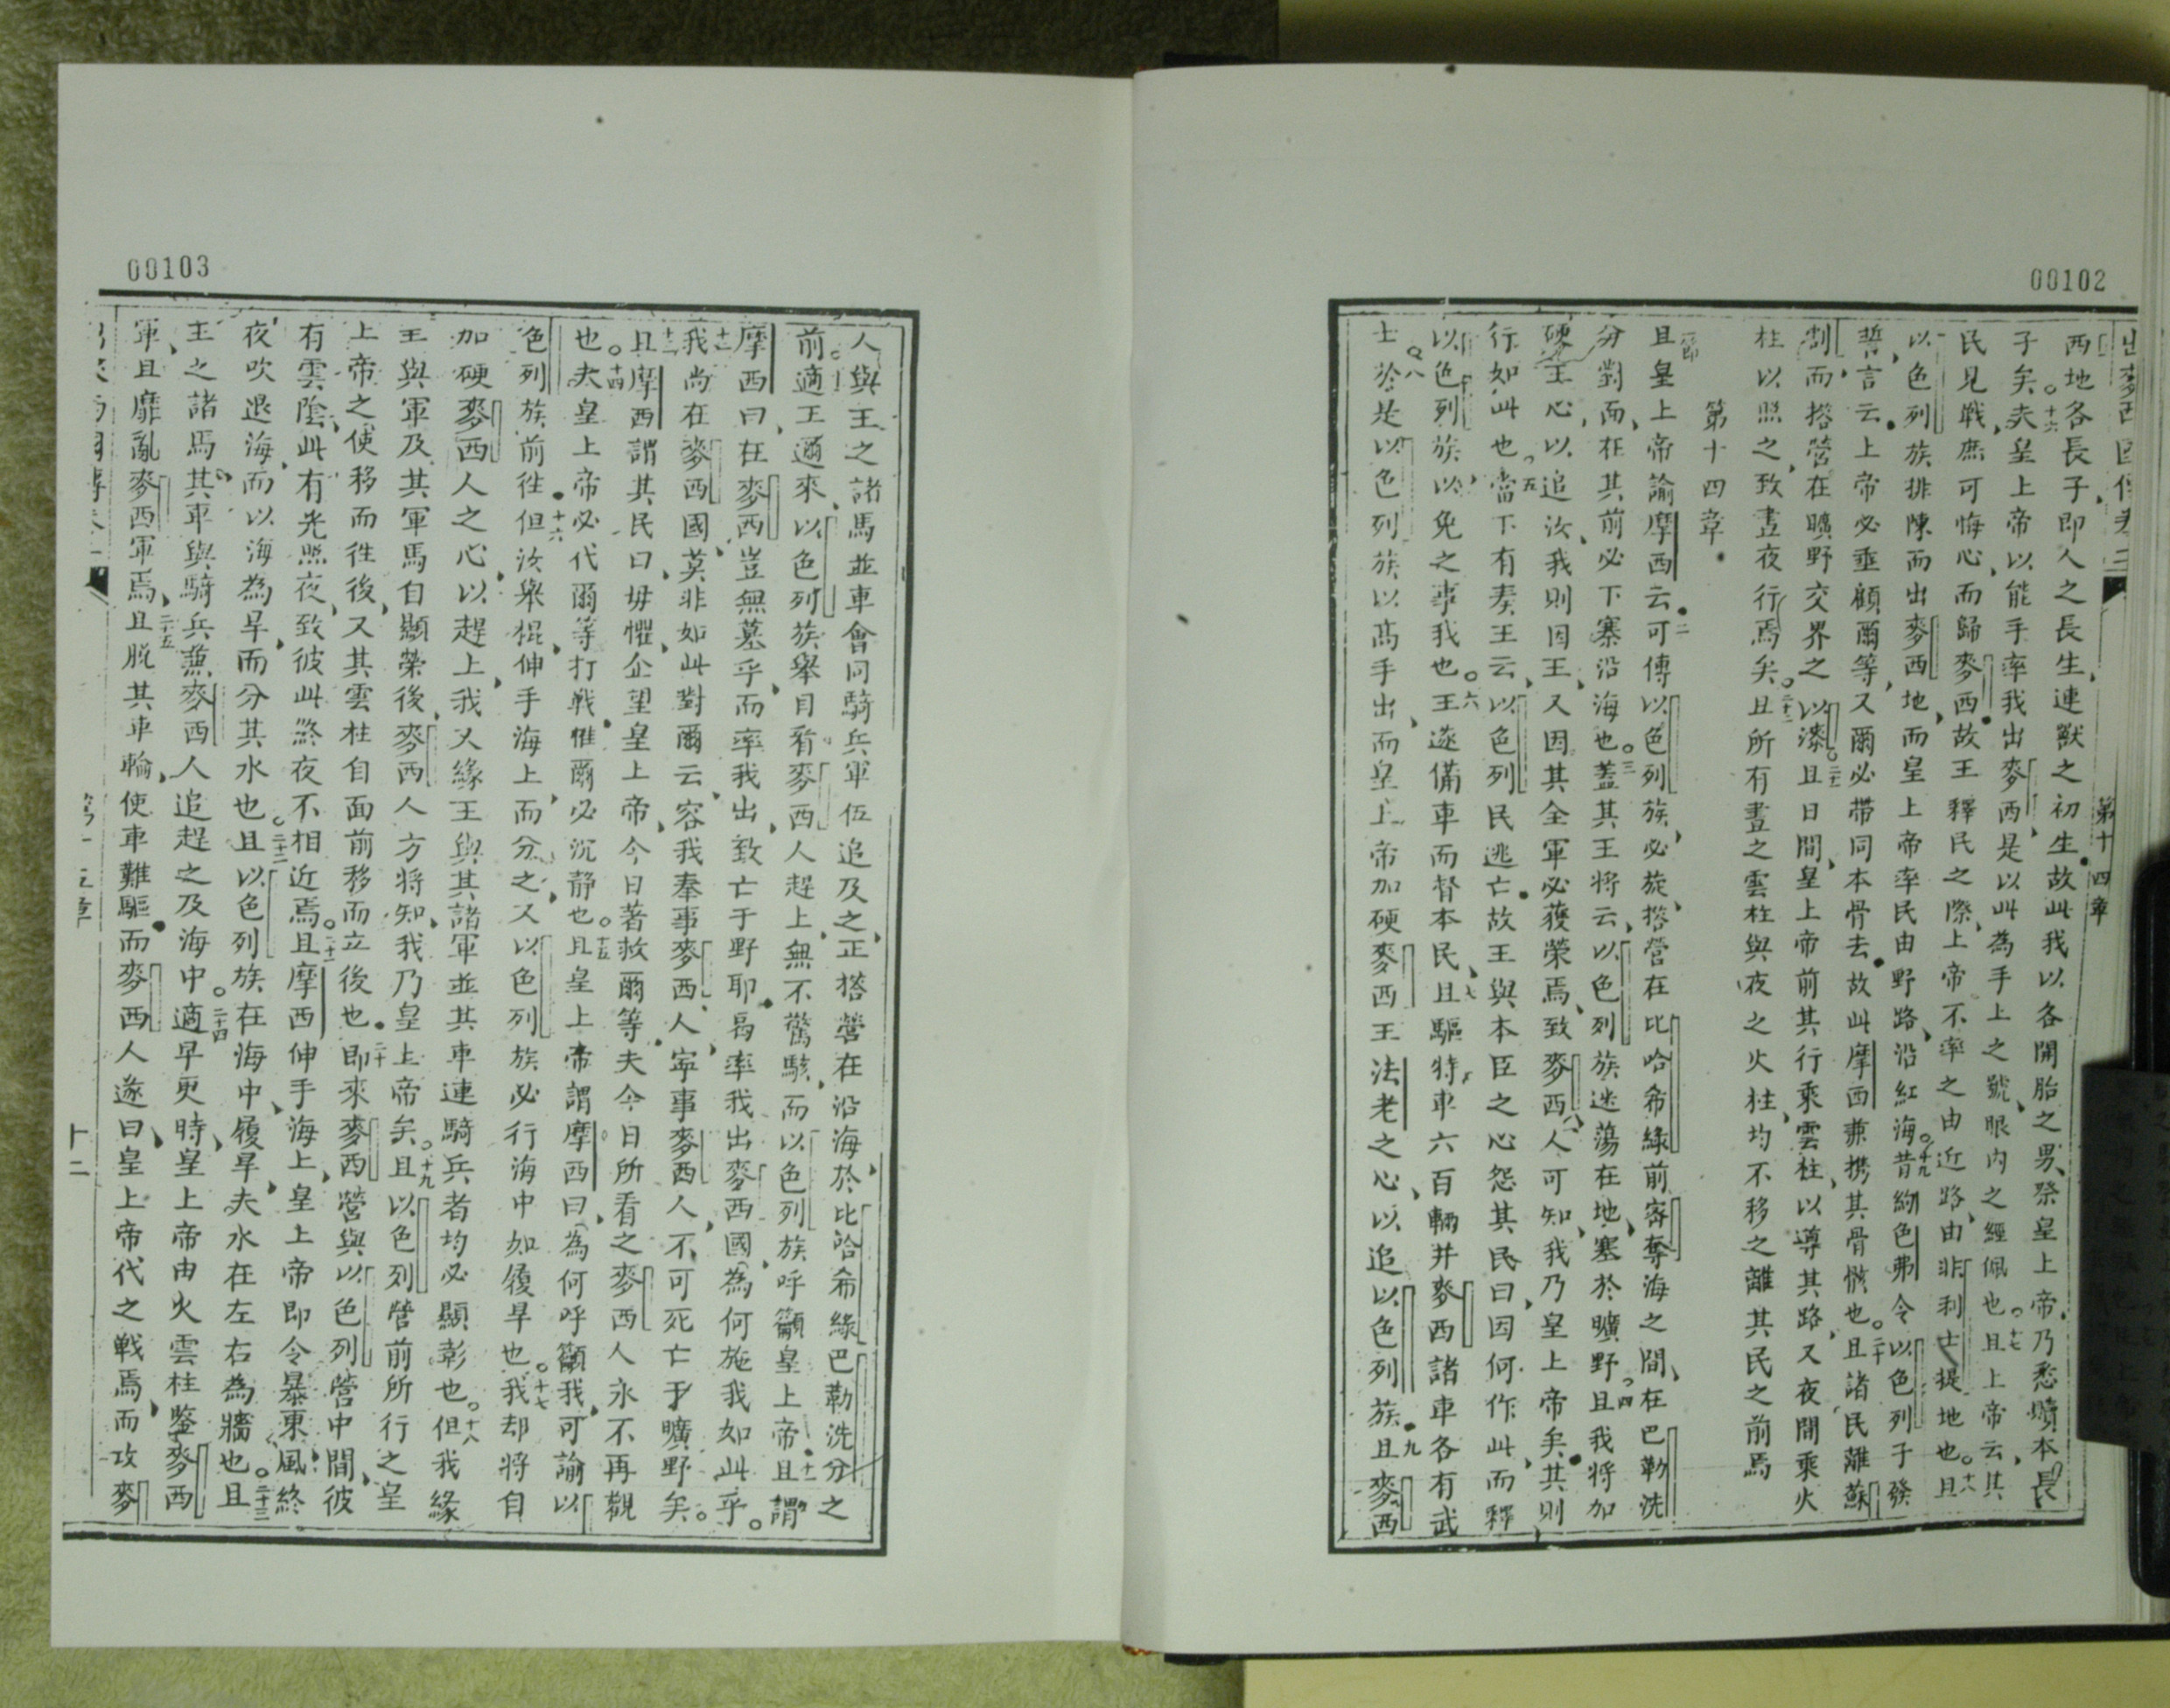 00102
出麥西國傳卷二 第十四章
西地各長子、即人之長生、連獸之初生。故此我以各開胎之男、祭皇上帝、乃悉贖本長
子矣。十六夫皇上帝以能手率我出麥西、是以此為手上之號、眼內之經佩也。十七且上帝云、其
民見戰、庶可悔心、而歸麥西。故王釋民之際、上帝不率之由近路、由非利士提地也。十八且
以色列族排陳而出麥西地、而皇上帝率民由野路、沿紅海。十九昔約色弗令以色列子發
誓言云、上帝必垂顧爾等、又爾必帶同本骨去。故此摩西兼携其骨骸也。二十且諸民離蘇
割、而搭營在曠野交界之以漆。二十一且日間、皇上帝前其行乘雲柱、以導其路、又夜間乘火
柱以照之、致晝夜行焉矣。二十二且所有晝之雲柱與夜之火柱、均不移之離其民之前焉
第十四章
一節且皇上帝諭摩西云、二可傳以色列族、必旋、搭營在比哈希綠前、容奪海之間、在巴勒洗
分對面、在其前必下寨沿海也。三蓋其王將云、以色列族迷蕩在地、塞於曠野。四且我將加
硬王心以追汝、我則因王、又因其全軍必獲榮焉、致麥西人可知、我乃皇上帝矣。其則
行如此也。五當下有奏王云、以色列民逃亡。故王與本臣之心怨其民曰、因何作此、而釋
以色列族、以免之事我也。六王遂備車而督本民、七且驅特車六百輛并麥西諸車各有武
士。八於是以色列族以高手出、而皇上帝加硬麥西王法老之心、以追以色列族。九且麥西
00103
人與王之諸馬並車會同騎兵軍伍追及之、正搭營在沿海、於比哈希綠巴勒洗分之
前。適王邇來、以色列族舉目看麥西人趕上、無不驚駭、而以色列族呼籲皇上帝。十一且謂
摩西曰、在麥西豈無墓乎、而率我出、致亡于野耶。曷率我出麥西國、為何施我如此乎。
十二我尚在麥西國、莫非如此對爾云、容我奉事麥西人、寧事麥西人、不可死亡于曠野矣。
十三且摩西謂其民曰、毋懼、企望皇上帝、今日著救爾等、夫今日所看之麥西人永不再觀
也。十四夫皇上帝必代爾等打戰、惟爾必沉靜也。十五且皇上帝謂摩西曰、為何呼籲我、可諭以
色列族前徃。十六但汝舉棍、伸手海上、而分之、又以色列族必行海中如履旱也。十七我却將自
加硬麥西人之心、以趕上、我又緣王與其諸軍並其車連騎兵者均必顯彰也。十八但我緣
王與軍及其軍馬自顯榮後、麥西人方將知、我乃皇上帝矣。十九且以色列營前所行之皇
上帝之使移而徃後、又其雲柱自面前移而立後也。二十即來麥西營與以色列營中間、彼
有雲陰、此有光照夜、致彼此終夜不相近焉。二十一且摩西伸手海上、皇上帝即令暴東風、終
夜吹退海、而以海為旱、而分其水也。二十二且以色列族在海中、履旱、夫水在左右為牆也。二十三且
王之諸馬、其車與騎兵兼麥西人追趕之及海中。二十四適早更時、皇上帝由火雲柱鑒麥西
軍、且靡亂麥西軍焉、二十五且脫其車輪、使車難驅。而麥西人遂曰、皇上帝代之戰焉、而攻麥
十二